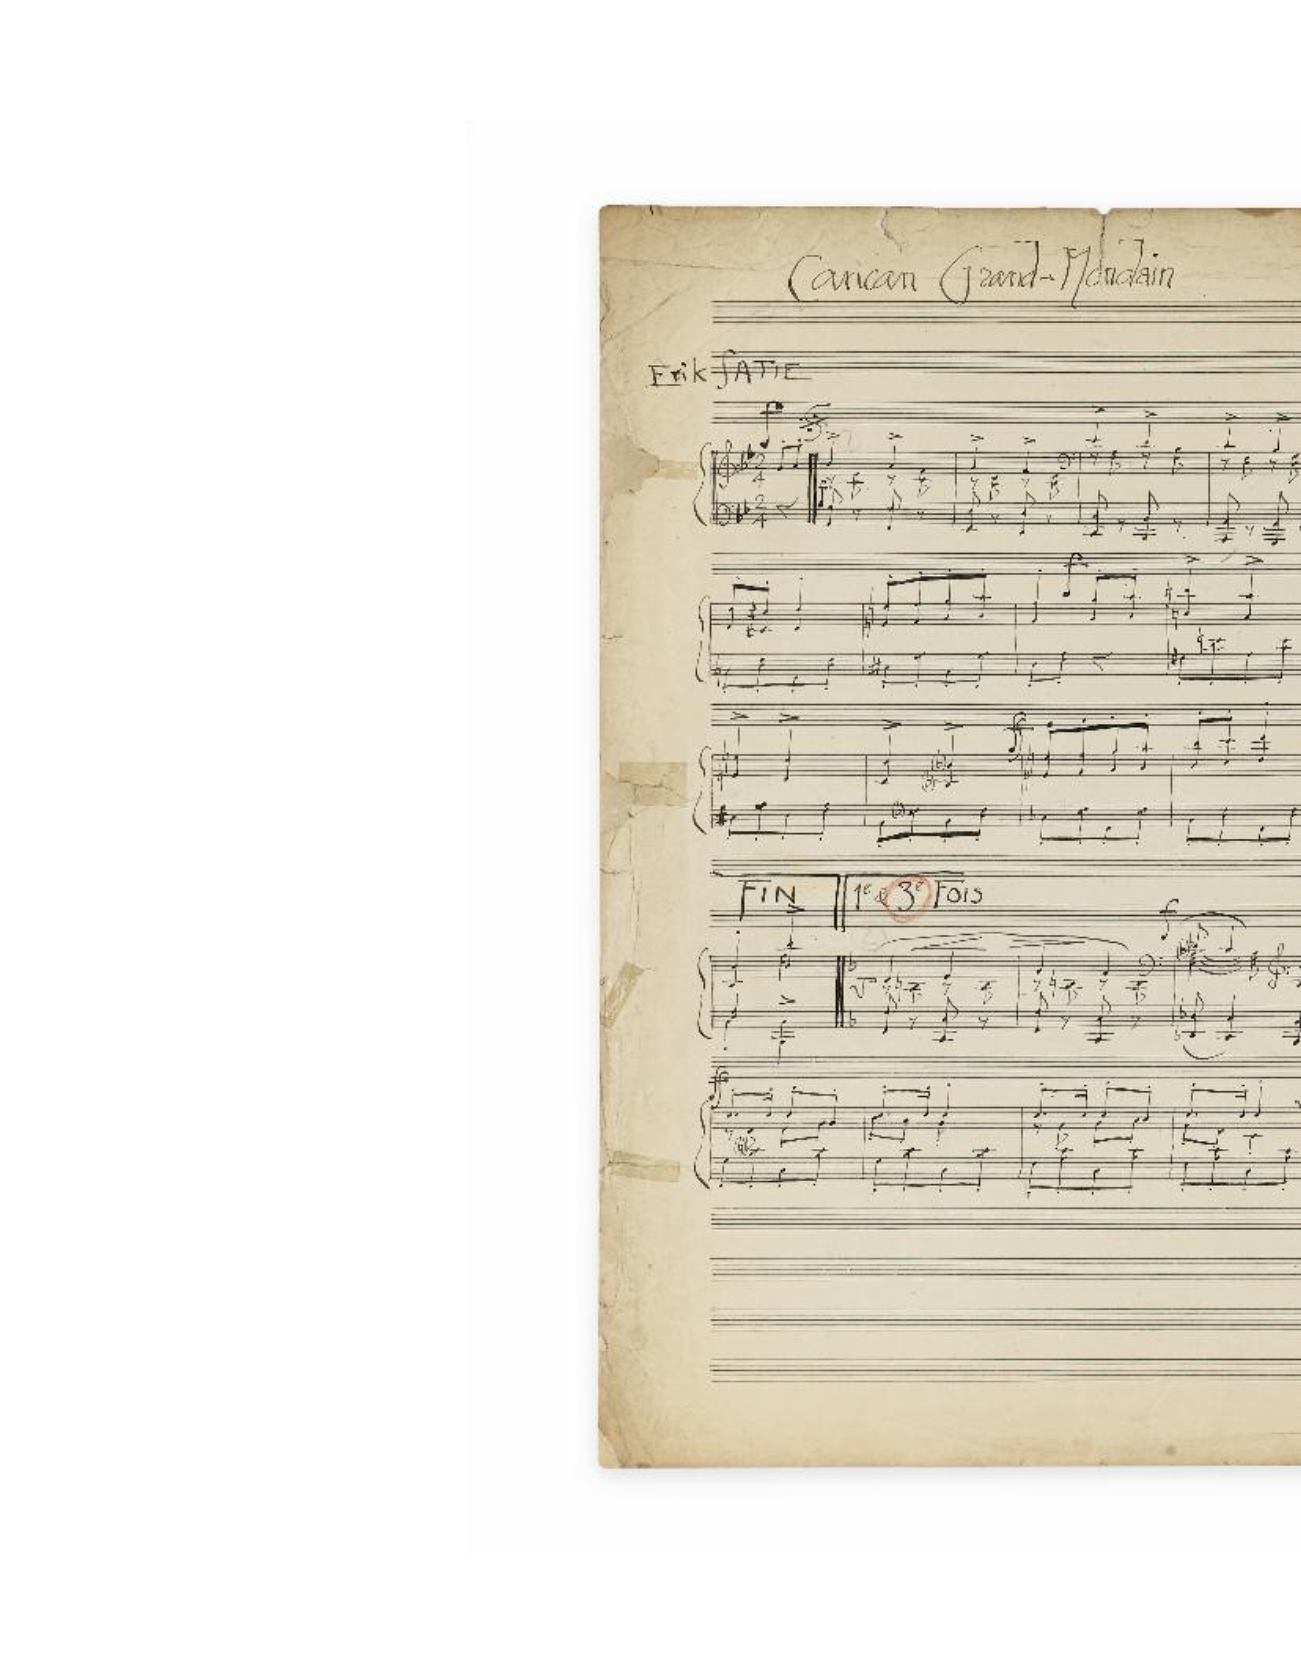 Cancan Grand-Mondain
Erik SATIE
FIN
1e & 3e FOIS